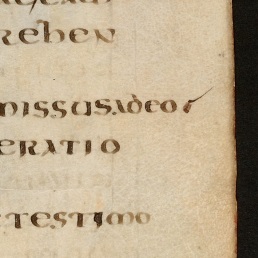 rehen
missus adeo
eratio
testimo